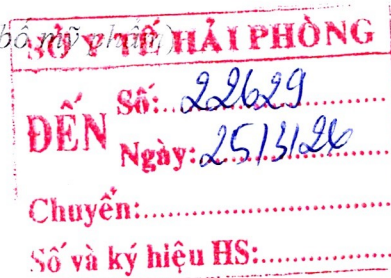 bố mỹ phẩm,)
SỞ Y TẾ HẢI PHÒNG
ĐẾN
Số: 22629
Ngày: 25/3/26
Chuyển:
Số và ký hiệu HS: